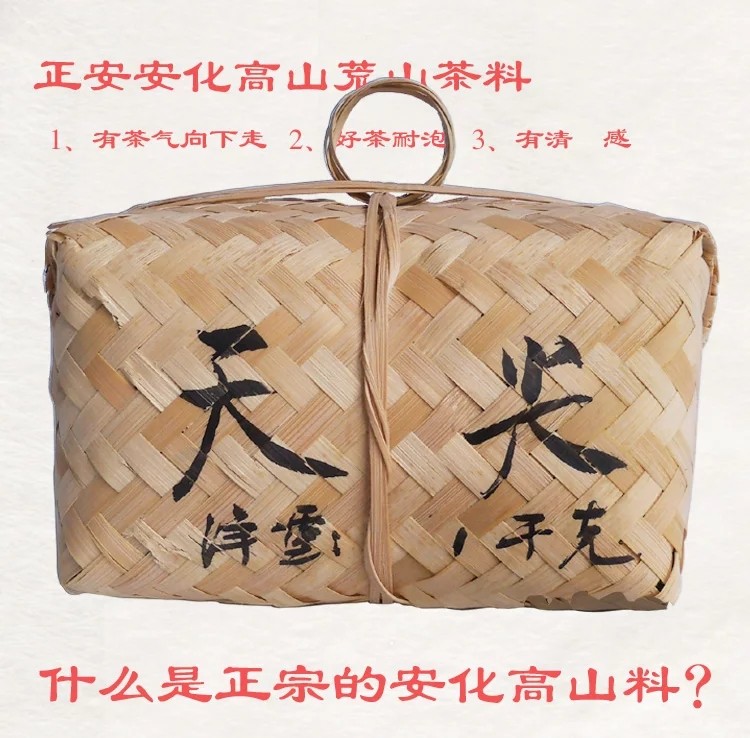 正安安化高山荒山茶料
1、有茶气向下走 2、好茶耐泡 3、有清 感
天 尖
净重: 1千克
什么是正宗的安化高山料?